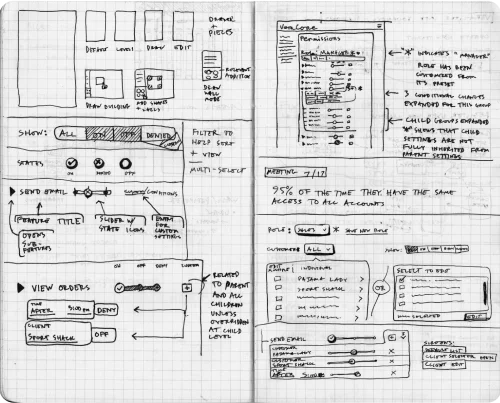 DRAWER
+
PIECES
DEFAULT LEVEL DRAW EDIT
DRAW BUILDING
ADD SHAPES
+ LABELS
DRAW
WALL
MODE
SHOW: ALL ON OFF DENIED
FILTER TO
HELP SORT
+ VIEW
MULTI-SELECT
STATES
ON DENIED OFF
SEND EMAIL
CONDITIONS
FEATURE TITLE
OPENS
SUB-
FEATURES
SLIDER W/
STATE ICONS
ENTRY
FOR
CUSTOM
SETTINGS
ON OFF DENY CUSTOM
VIEW ORDERS
TIME
AFTER 5:00 PM DENY
CLIENT
SPORT SHACK OFF
RELATED
TO PARENT
AND ALL
CHILDREN
UNLESS
OVERRIDDEN
AT CHILD
LEVEL
Permissions
ROLE: MANAGER *
"*" INDICATES "MANAGER"
ROLE HAS BEEN
CUSTOMIZED FROM
IT'S PRESET
3 CONDITIONAL CHANGES
EXPANDED FOR THIS GROUP
CHILD GROUPS EXPANDED
"*" SHOWS THAT CHILD
SETTINGS ARE NOT
FULLY INHERITED FROM
PARENT SETTINGS
MEETING 7/17
95% OF THE TIME THEY HAVE THE SAME
ACCESS TO ALL ACCOUNTS
ROLE: SALES * SAVE NEW ROLE
CUSTOMER ALL SHOW:
EDIT
MULTIPLE INDIVIDUAL
PAJAMA LADY >
SPORT SHACK >
OR
SELECT TO EDIT
EDIT
SEND EMAIL
CUSTOMER
PAJAMA LADY X
CUSTOMER
SPORT SHACK X
TIME
AFTER 5:00PM X
SCREENS:
DEFAULT LIST
CLIENT SELECTOR OPEN
CLIENT EDIT